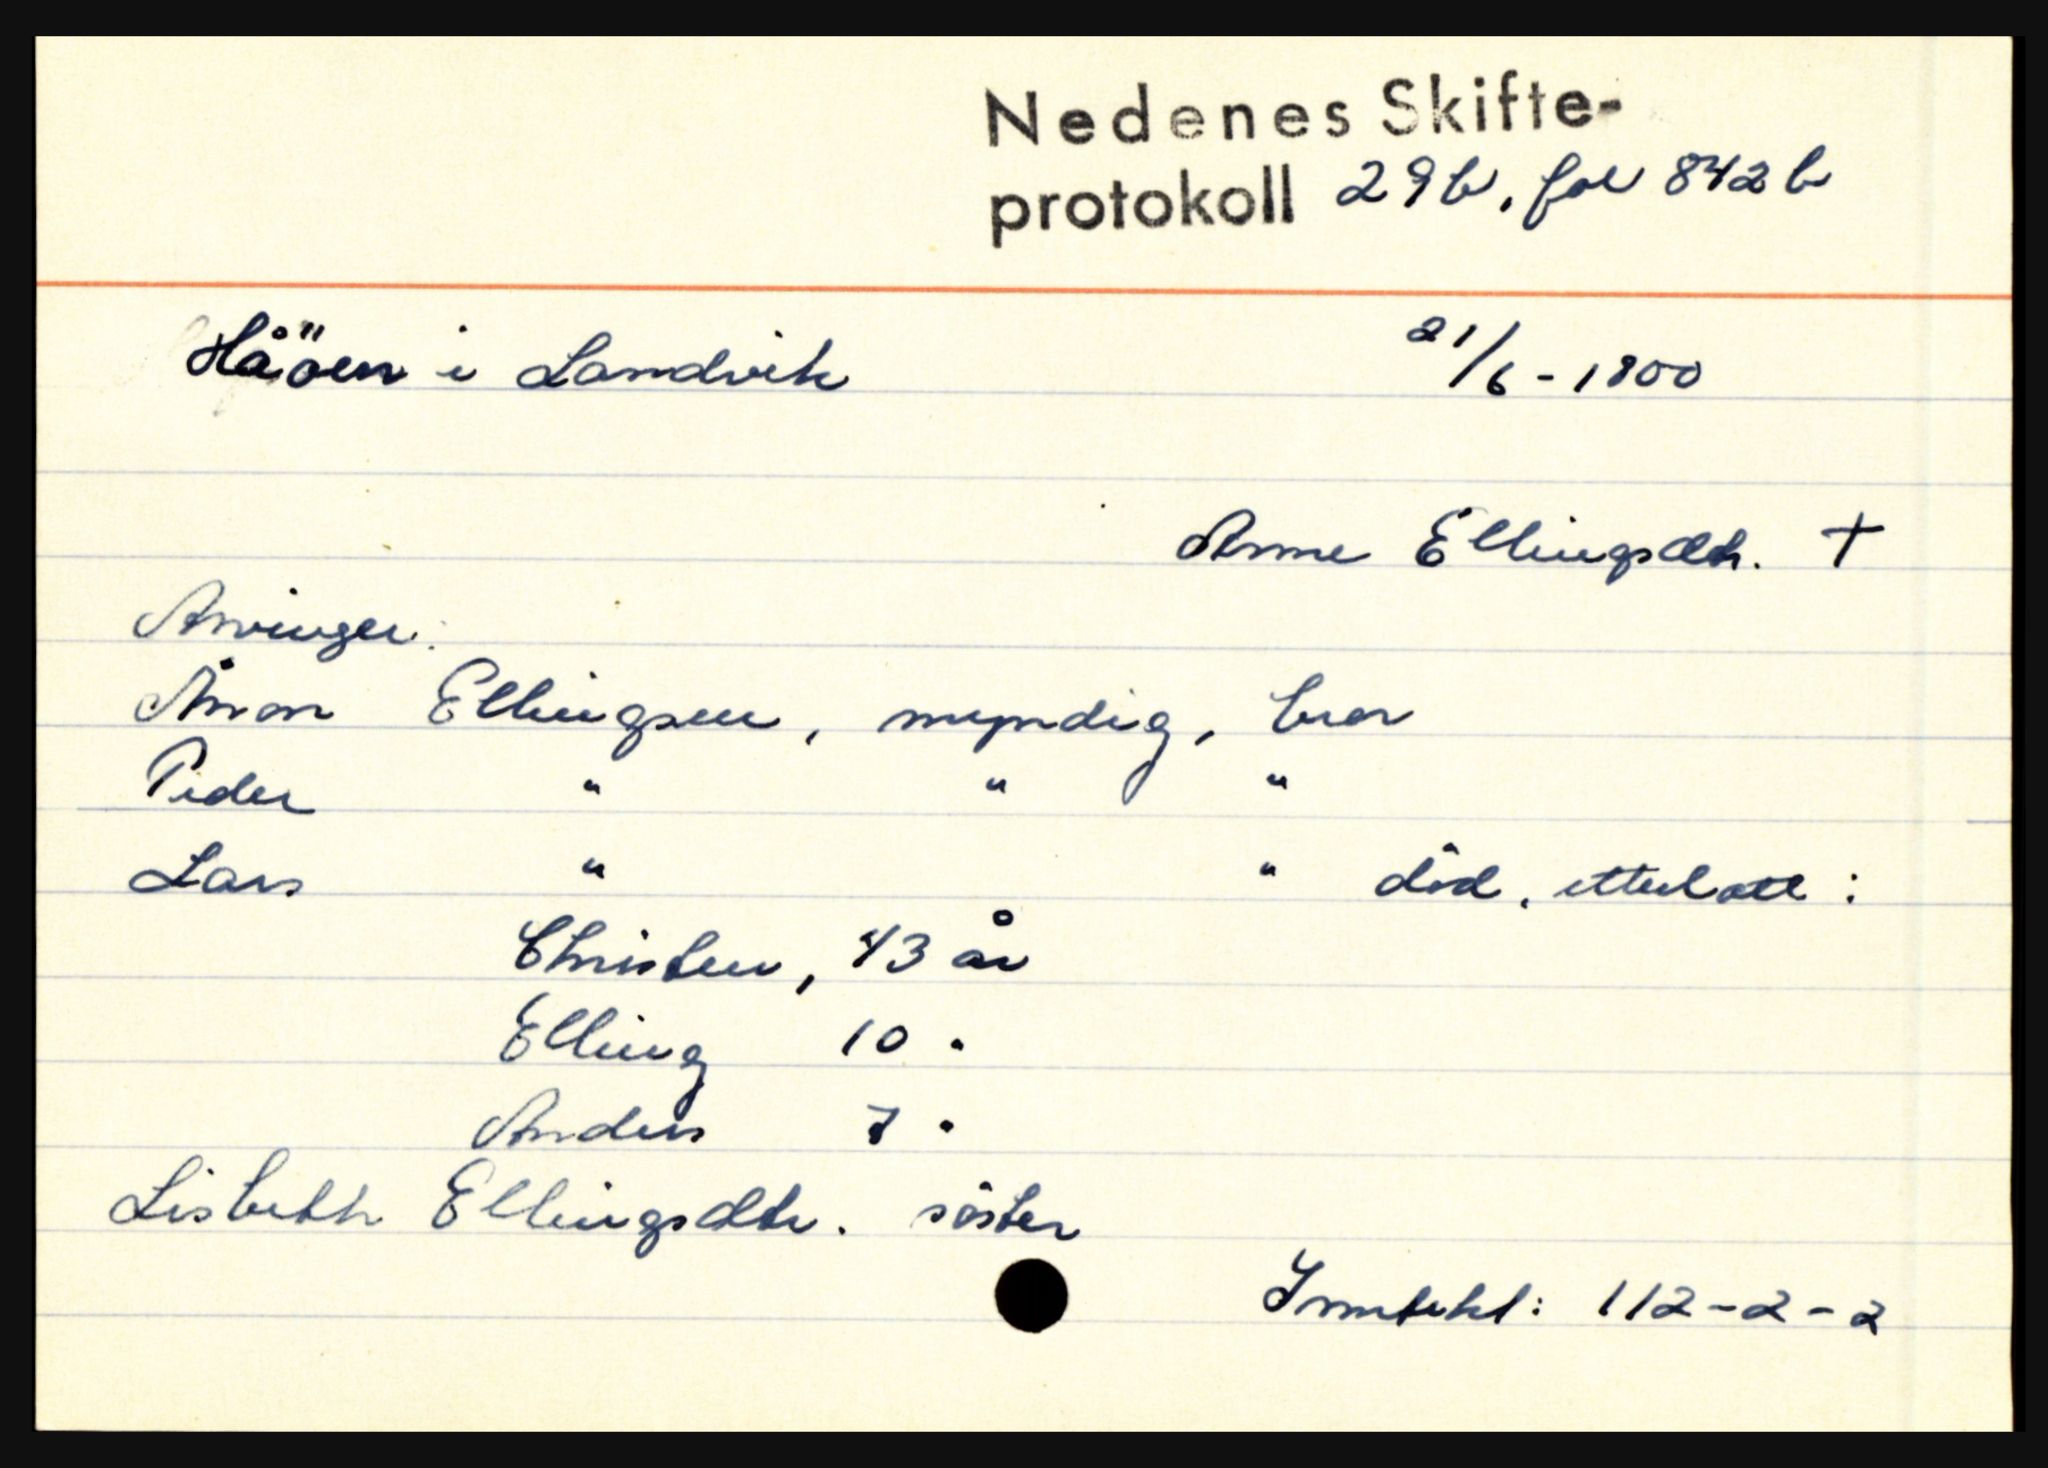 Nedenes Skifte-
protokoll 29b, fol 842b
Håöen i Landvik 21/6-1800
Anne Ellingsdtr. +
Arvinger:
Ånon Ellingsen, myndig, bror
Peder " " "
Lars " " död, etterlatt:
Christen, 13 år
Elling 10 "
Anders 7 "
Lisbeth Ellingsdtr. söster
Inntekt: 112-2-2